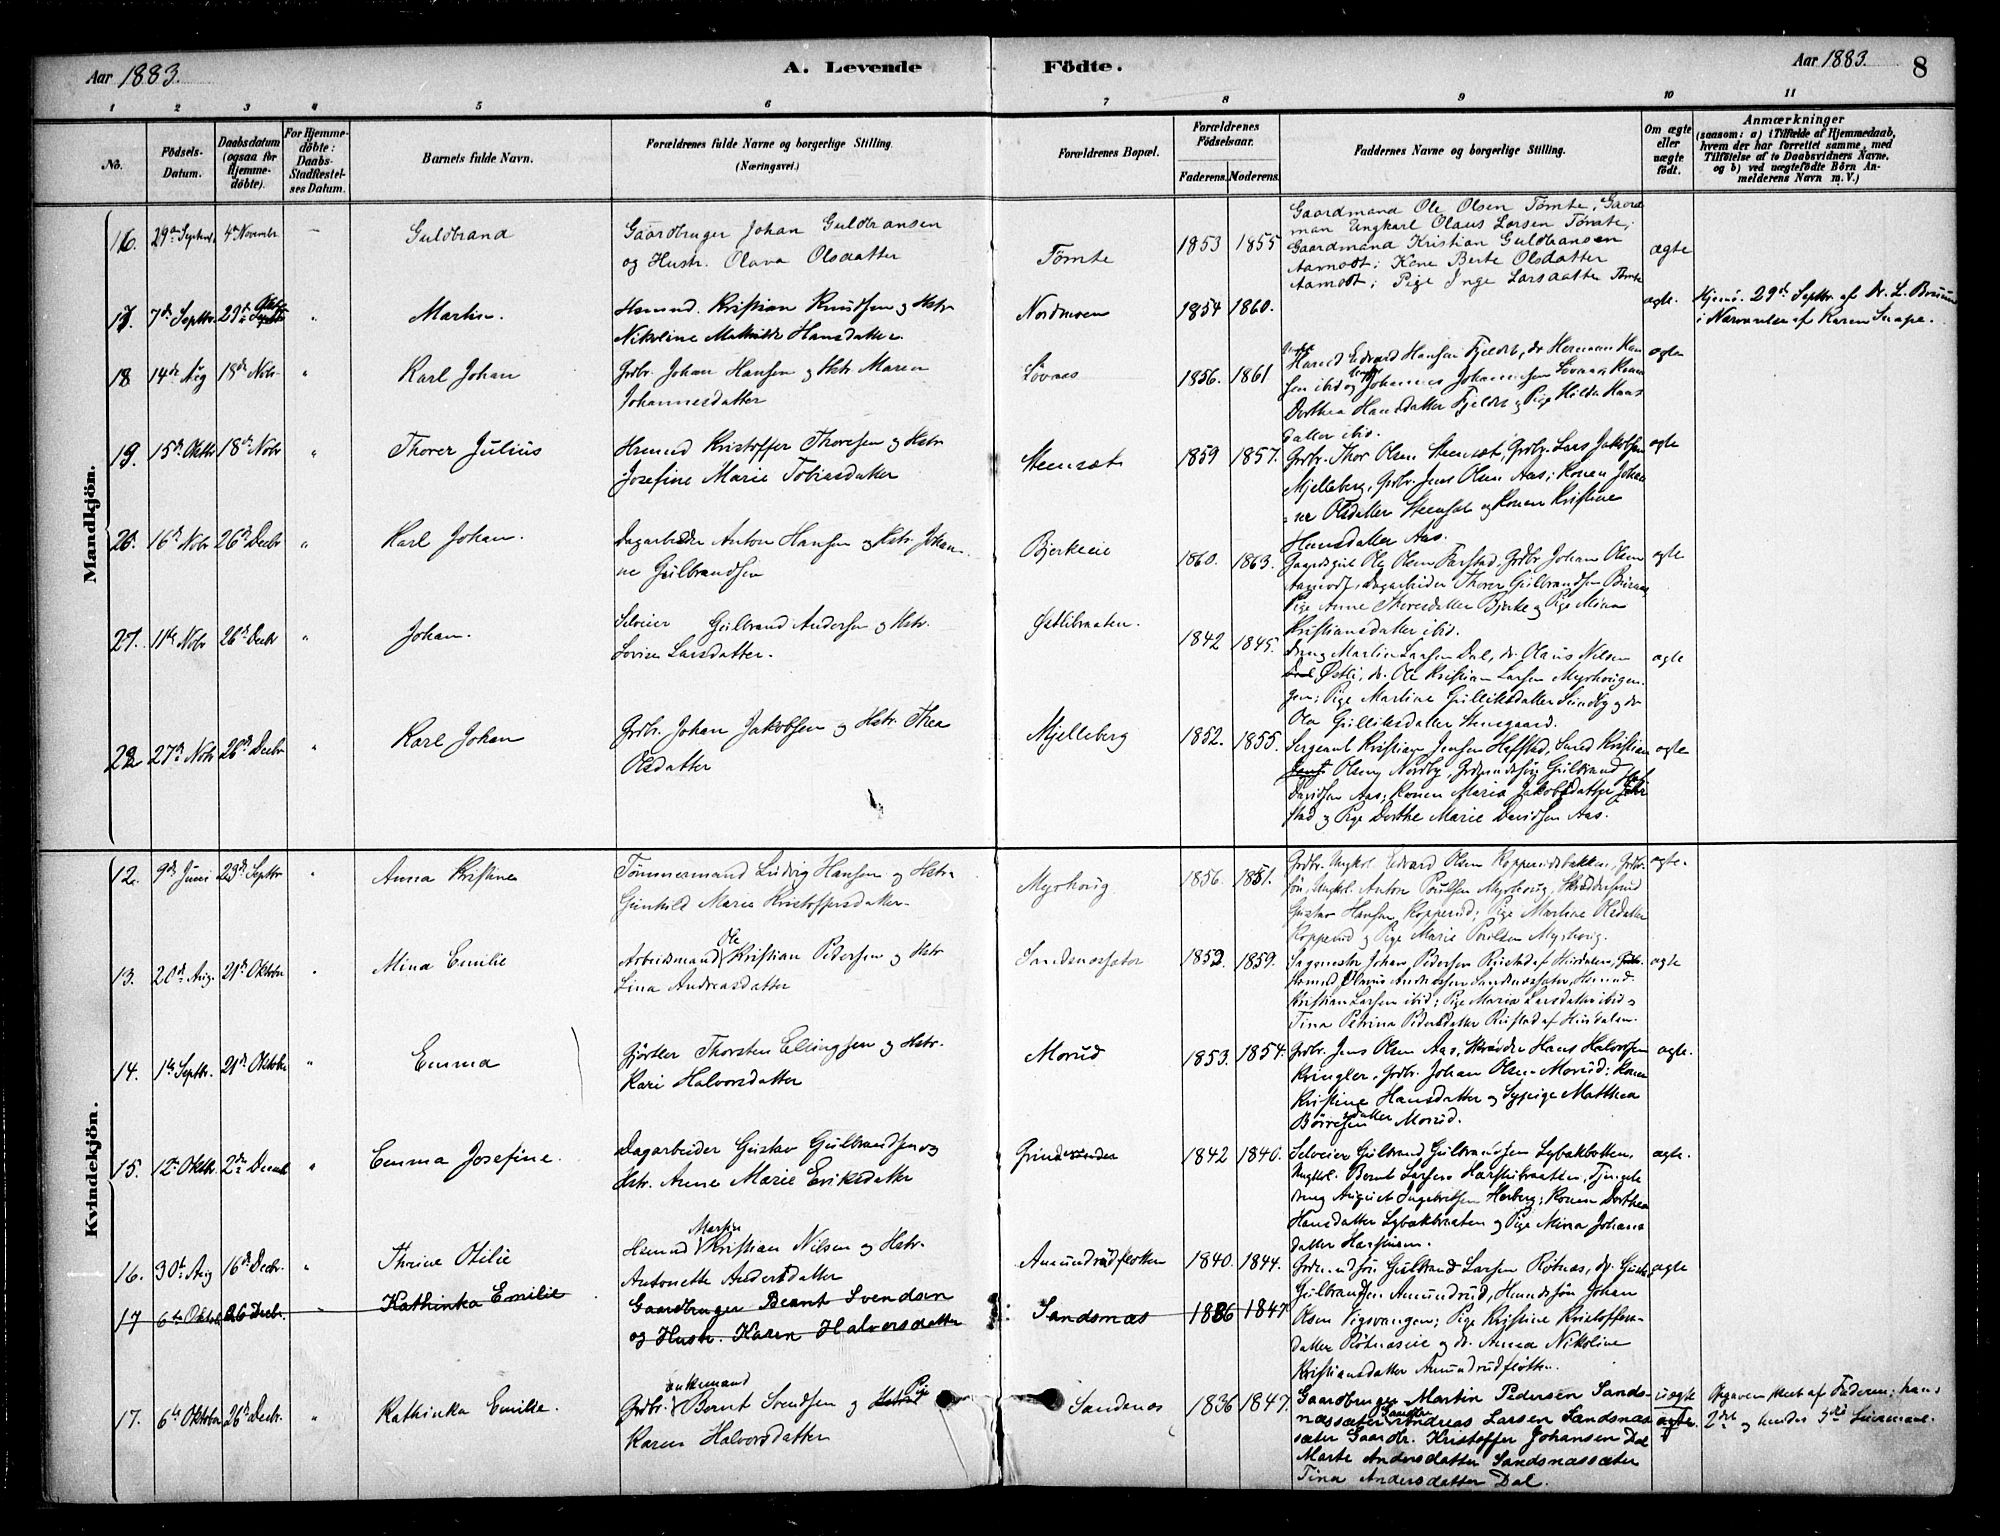 Aar 1883.
A. Levende Födte.
Aar 1883.
8
1 2 3 4 5 6 7 8 9 10 11
No.
Födsels-Datum.
Daabsdatum (ogsaa for Hjemmedöbte).
For Hjemmedöbte: Daabs-Stadfestelses Datum.
Barnets fulde Navn.
Forældrenes fulde Navne og borgerlige Stilling. (Næringsvei.)
Forældrenes Bopæl.
Forældrenes Födselsaar.
Faderens. Moderens.
Faddernes Navne og borgerlige Stilling.
Om ægte eller uægte födt.
Anmærkninger
(saasom: a) i Tilfælde af Hjemmedaab,
hvem der har forrettet samme, med
Tilföielse af to Daabsvidners Navne,
og b) ved uægtefödte Börn Anmelderens Navn m. V.)
Mandkjön.
16. 29de Septbr. 4de Novembr. Guldbrand
Gaardbruger Johan Guldbransen
og Hustr. Olava Olsdatter
Tömte 1853 1855
Gaardmand Ole Olsen Tömte, Gaard
man Ungkarl Olaus Larsen Tömte;
Gaardmand Kristian Guldbransen
Aamodt; Kone Berte Olsdatter
Aamodt; Pige Inge Larsdatter Tömte
ægte
17. 7de Septbr. 29de Septbr Oktb " Martin.
Hsmnd. Kristian Knudsen og Hstr
Nikoline Mathilde Hansdatter.
Nordmoen 1854 1860. ægte.
Hjemd. 29de Septbr. af Dr. L. Bruun
i Nærværelse af Karen Snape.
18 14de Aug 18de Nobr " Karl Johan
Grdbr. Johan Hansen og Hstr Maren
Johannesdatter
Lövnæs 1856. 1861
Edvard Hansen Fjeldst, dr Herman Han
sen ibid og Johannes Johannesen Lövnæs, Konen
Dorthea Hansdatter Fjeldst og Pige Hilda Hans
datter ibid.
ægte
19. 15de Oktbr 18de Nobr " Thorer Julius
Hsmnd Kristoffer Thoresen og Hstr
Josefine Marie Tobiasdatter
Steensæt 1859 1857.
Grdbr. Thor Olsen Steensæt, Grdbr. Lars Jakobsen
Mjelleberg, Grdbr. Jens Olsen Aas; Konen Johan
ne Olsdatter Steensæt og Konen Kristine
Hansdatter Aas.
ægte
20. 16de Nobr 26de Decbr " Karl Johan.
Dagarbeider Anton Hansen og Hstr Johan
ne Gulbrandsen
Bjerkeeie 1860. 1863.
Gaardsgut Ole Olsen Farstad, Grdbr Johan Olsen
Aamodt, Dagarbeider Thorer Gulbrandsen
Pige Anne Thoresdatter Bjerke og Pige Mina
Kristiansdatter ibid.
ægte
21. 11te Nobr 26de Decbr " Johan.
Selveier Gulbrand Andersen og Hstr.
Lovise Larsdatter.
Östlibraaten. 1842 1845.
Dreng Martin Larsen Dal, dr. Olaus Nilsen
Östli, dr. Ole Kristian Larsen Myrhaugen
Pige Martine Gulliksdatter Sundby og dr
Olea Gulliksdatter Steensgaard.
ægte
22 27de Nobr 26de Decbr " Karl Johan
Grdbr. Johan Jakobsen og Hstr. Thea
Olsdatter
Mjelleberg 1852. 1855.
Sergeant Kristian Jensen Hofstad, Smed Kristian
Olsen Nordby, Grdmndssön Gulbrand
Davidsen Aas; Konen Maria Jakobsdatter
stad og Pige Dorthe Marie Davidsen Aas.
ægte
Kvindekjön.
12. 9de Juni 23de Septbr " Anna Kristine
Tömmermand Ludvig Hansen og Hstr
Gunhild Marie Kristoffersdatter.
Myrhaug 1856. 1851.
Grdbr. Ungkl. Edvard Olsen Kopperudsbakken, Grdbr.
sön, Ungkl. Anton Poulsen Myrhaug, Skræddersvend
Gustav Hansen Kopperud; Pige Martine Olsdatter
Kopperud og Pige Marie Poulsen Myrhaug.
ægte.
13. 20de Aug. 21de Oktober " Mina Emilie
Arbeidsmand Ole Kristian Pedersen og Hstr
Lina Andreasdatter
Sandnessæter 1852. 1859.
Sagmester Johan Pedersen Rustad af Hurdalen, Grdbr.
Olaus Andreassen Sandnessæter, Hsmnd
Kristian Larsen ibid; Pige Maria Larsdatter ibid
Tina Petrina Pedersdatter Rustad af Hurdalen.
ægte
14. 1ste Septbr. 21de Oktober " Emma
Gjörtler Thorsten Ellingsen og Hstr.
Kari Halvorsdatter
Morud 1853. 1854.
Grdbr. Jens Olsen Aas, Skrædder Hans Halvorsen
Kringler, Grdbr. Johan Olsen Morud; Konen
Kristine Hansdatter og Sypige Matthea
Börresendatter Morud.
ægte.
15. 12te Oktbr. 2den Decemb " Emma Josefine.
Dagarbeider Gustav Gulbrandsen og
Hstr. Anne Marie Eriksdatter
Grinder 1842 1840.
Selveier Gulbrand Gulbrandsen Lybakbotten,
Ungkl. Bernt Larsen Harstubraaten, Tjenestedreng August Ingebretsen Herberg; Konen Dorthea
Hansdatter Lybækbraaten og Pige Mina Johansdatter
ægte.
16. 30te Aug 16de Decbr. " Thrine Otilie
Hsmnd Martin Kristian Nilsen og Hstr.
Antonette Andersdatter
Amundrudfloten 1840. 1844.
Grdmndssön Gulbrand Larsen Rötnæs, dr. Gustav
Gulbrandsen Amundrud, Hsmndssön Johan
Olsen Vigsvangen; Pige Kristine Kristoffersdatter Rötnæseie og dr. Anna Nikoline
Kristiansdatter Amundrudfloten.
ægte
17 6te Oktob 26 Decbr. Kathinka Emilie
Gaardbruger Bernt Svendsen
og Hustr. Karen Halvorsdatter
Sandsnæs 1836 1847
17. 6te Oktober 26de Decbr. " Kathinka Emilie.
Grdbr. enkemand Bernt Svendsen og Hstr Pige
Karen Halvorsdatter
Sandenæs 1836 1847.
Gaardbruger Martin Pedersen Sandsnæssæter Gaardbr. Andreas Larsen Sandsnæssæter Gaardbr. Kristoffer Johansen Dal
Marte Andersdatter Sandsnæssæter
Tina Andersdatter Dal.
uægte
ægte.
Opgaven skeet af Faderen; hans
2det og hendes 3die Leiermaal.